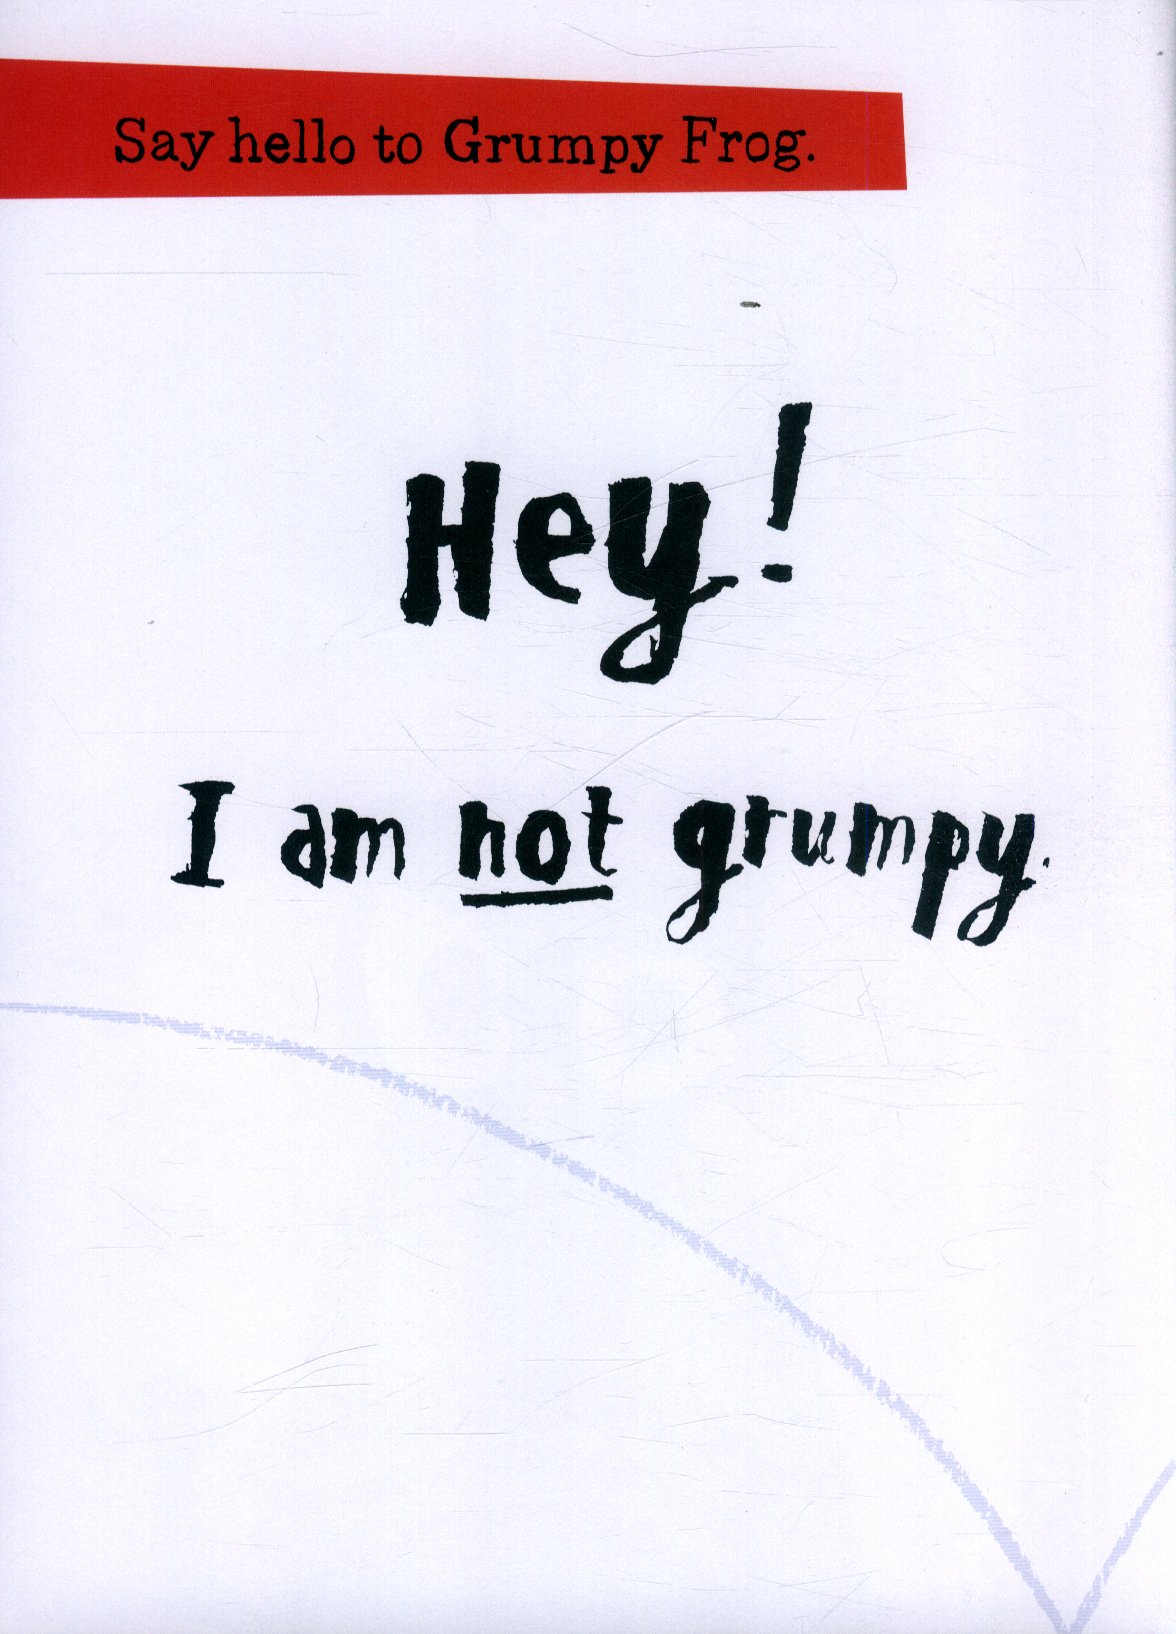 Say hello to Grumpy Frog.
Hey!
I am not grumpy.